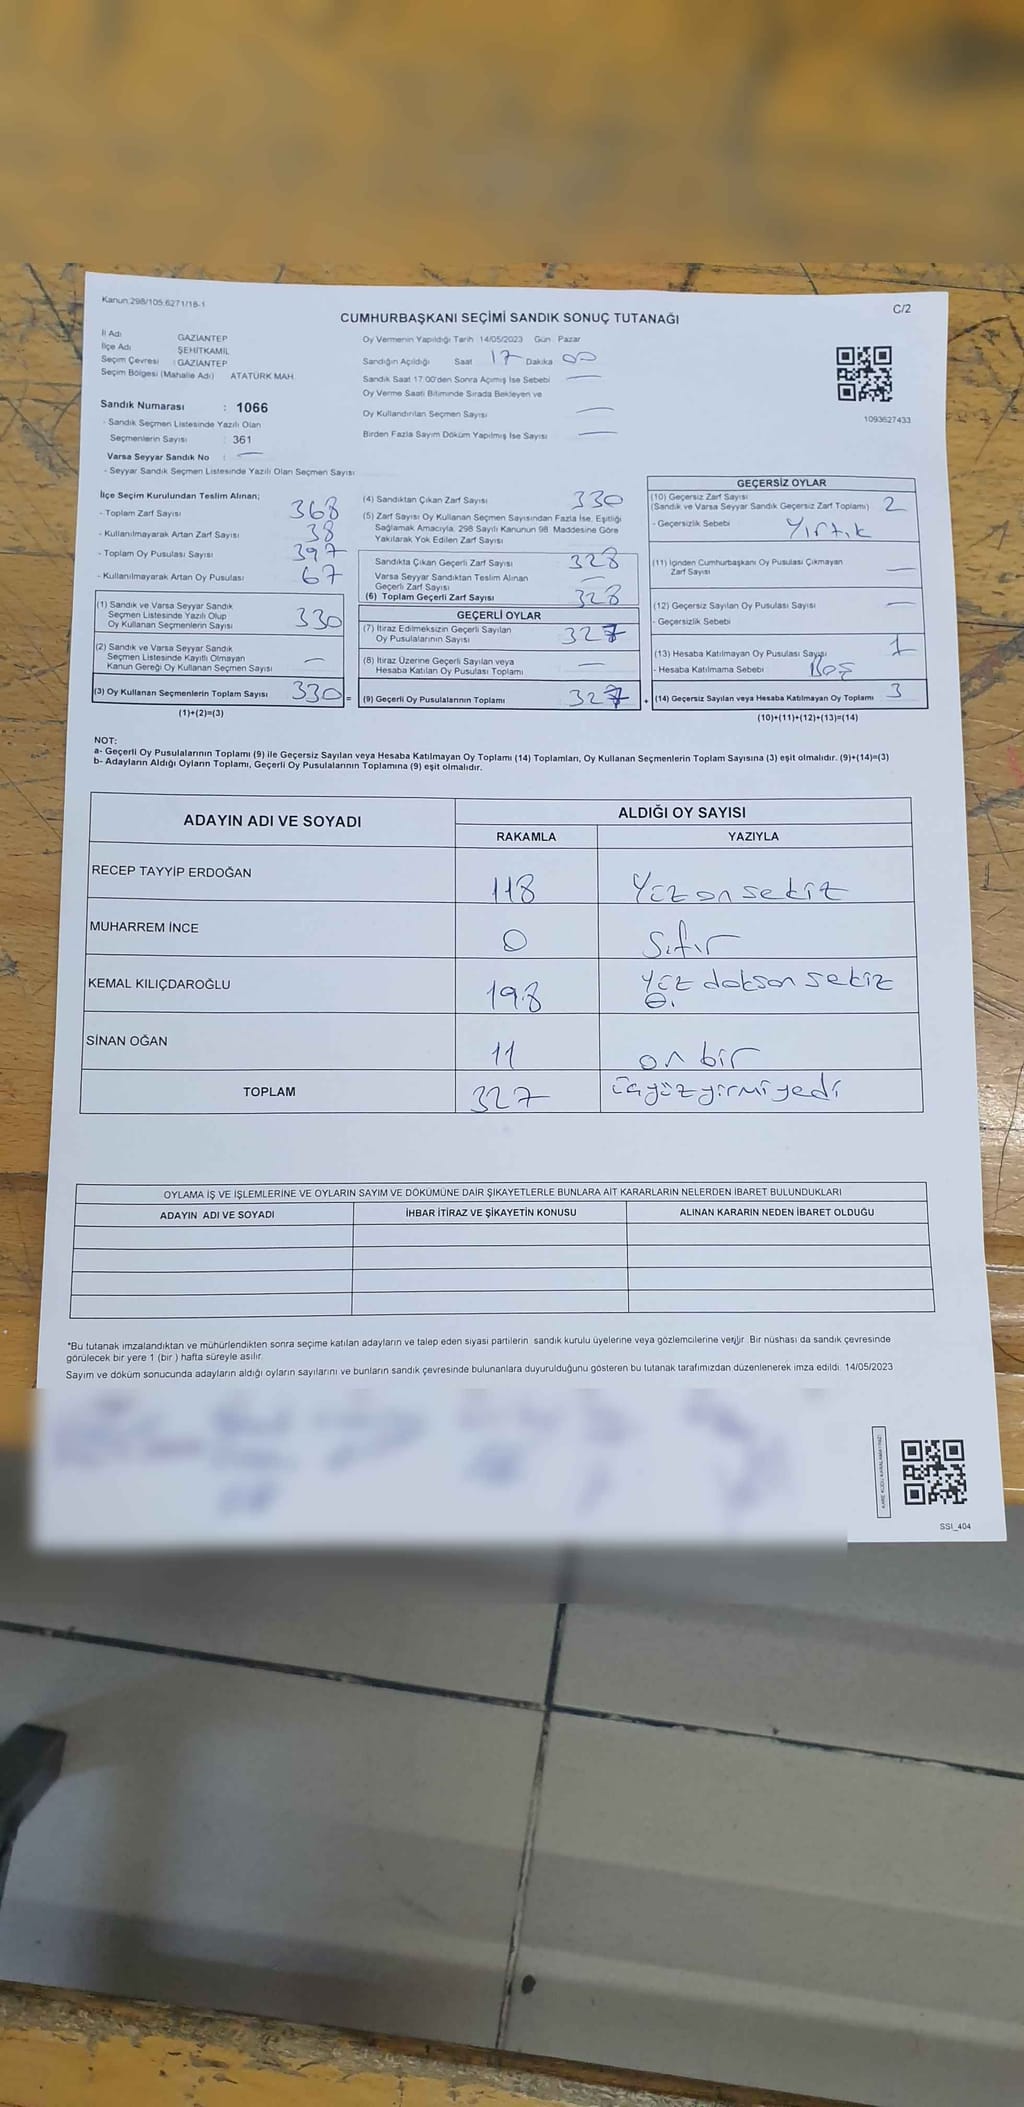 Kanun:298/105.6271/18-1
C/2
CUMHURBAŞKANI SEÇİMİ SANDIK SONUÇ TUTANAĞI
İl Adı GAZİANTEP
İlçe Adı ŞEHİTKAMİL
Seçim Çevresi : GAZİANTEP
Seçim Bölgesi (Mahalle Adı) ATATÜRK MAH.
Sandık Numarası : 1066
- Sandık Seçmen Listesinde Yazılı Olan
Seçmenlerin Sayısı : 361
Varsa Seyyar Sandık No : —
- Seyyar Sandık Seçmen Listesinde Yazılı Olan Seçmen Sayısı
Oy Vermenin Yapıldığı Tarih 14/05/2023 Gün Pazar
Sandığın Açıldığı Saat 17 Dakika 00
Sandık Saat 17.00'den Sonra Açımış İse Sebebi —
Oy Verme Saati Bitiminde Sırada Bekleyen ve
Oy Kullandırılan Seçmen Sayısı —
Birden Fazla Sayım Döküm Yapılmış İse Sayısı —
1093627433
İlçe Seçim Kurulundan Teslim Alınan;
- Toplam Zarf Sayısı 368
- Kullanılmayarak Artan Zarf Sayısı 38
- Toplam Oy Pusulası Sayısı 397
- Kullanılmayarak Artan Oy Pusulası 67
(1) Sandık ve Varsa Seyyar Sandık
Seçmen Listesinde Yazılı Olup
Oy Kullanan Seçmenlerin Sayısı 330
(2) Sandık ve Varsa Seyyar Sandık
Seçmen Listesinde Kayıtlı Olmayan
Kanun Gereği Oy Kullanan Seçmen Sayısı —
(3) Oy Kullanan Seçmenlerin Toplam Sayısı 330 =
(1)+(2)=(3)
(4) Sandıktan Çıkan Zarf Sayısı 330
(5) Zarf Sayısı Oy Kullanan Seçmen Sayısından Fazla İse, Eşitliği
Sağlamak Amacıyla, 298 Sayılı Kanunun 98. Maddesine Göre
Yakılarak Yok Edilen Zarf Sayısı
Sandıkta Çıkan Geçerli Zarf Sayısı 328
Varsa Seyyar Sandıktan Teslim Alınan
Geçerli Zarf Sayısı —
(6) Toplam Geçerli Zarf Sayısı 328
GEÇERLİ OYLAR
(7) İtiraz Edilmeksizin Geçerli Sayılan
Oy Pusulalarının Sayısı 327
(8) İtiraz Üzerine Geçerli Sayılan veya
Hesaba Katılan Oy Pusulası Toplamı —
(9) Geçerli Oy Pusulalarının Toplamı 327 +
GEÇERSİZ OYLAR
(10) Geçersiz Zarf Sayısı
(Sandık ve Varsa Seyyar Sandık Geçersiz Zarf Toplamı) 2
- Geçersizlik Sebebi Yırtık
(11) İçinden Cumhurbaşkanı Oy Pusulası Çıkmayan
Zarf Sayısı —
(12) Geçersiz Sayılan Oy Pusulası Sayısı —
- Geçersizlik Sebebi
(13) Hesaba Katılmayan Oy Pusulası Sayısı 1
- Hesaba Katılmama Sebebi Boş
(14) Geçersiz Sayılan veya Hesaba Katılmayan Oy Toplamı 3
(10)+(11)+(12)+(13)=(14)
NOT:
a- Geçerli Oy Pusulalarının Toplamı (9) ile Geçersiz Sayılan veya Hesaba Katılmayan Oy Toplamı (14) Toplamları, Oy Kullanan Seçmenlerin Toplam Sayısına (3) eşit olmalıdır. (9)+(14)=(3)
b- Adayların Aldığı Oyların Toplamı, Geçerli Oy Pusulalarının Toplamına (9) eşit olmalıdır.
ADAYIN ADI VE SOYADI ALDIĞI OY SAYISI
RAKAMLA YAZIYLA
RECEP TAYYİP ERDOĞAN 118 Yüz on sekiz
MUHARREM İNCE 0 Sıfır
KEMAL KILIÇDAROĞLU 198 Yüz doksan sekiz
SİNAN OĞAN 11 on bir
TOPLAM 327 üçyüzyirmiyedi
OYLAMA İŞ VE İŞLEMLERİNE VE OYLARIN SAYIM VE DÖKÜMÜNE DAİR ŞİKAYETLERLE BUNLARA AİT KARARLARIN NELERDEN İBARET BULUNDUKLARI
ADAYIN ADI VE SOYADI İHBAR İTİRAZ VE ŞİKAYETİN KONUSU ALINAN KARARIN NEDEN İBARET OLDUĞU
*Bu tutanak imzalandıktan ve mühürlendikten sonra seçime katılan adayların ve talep eden siyasi partilerin sandık kurulu üyelerine veya gözlemcilerine verilir. Bir nüshası da sandık çevresinde
görülecek bir yere 1 (bir ) hafta süreyle asılır.
Sayım ve döküm sonucunda adayların aldığı oyların sayılarını ve bunların sandık çevresinde bulunanlara duyurulduğunu gösteren bu tutanak tarafımızdan düzenlenerek imza edildi. 14/05/2023
SSI_404